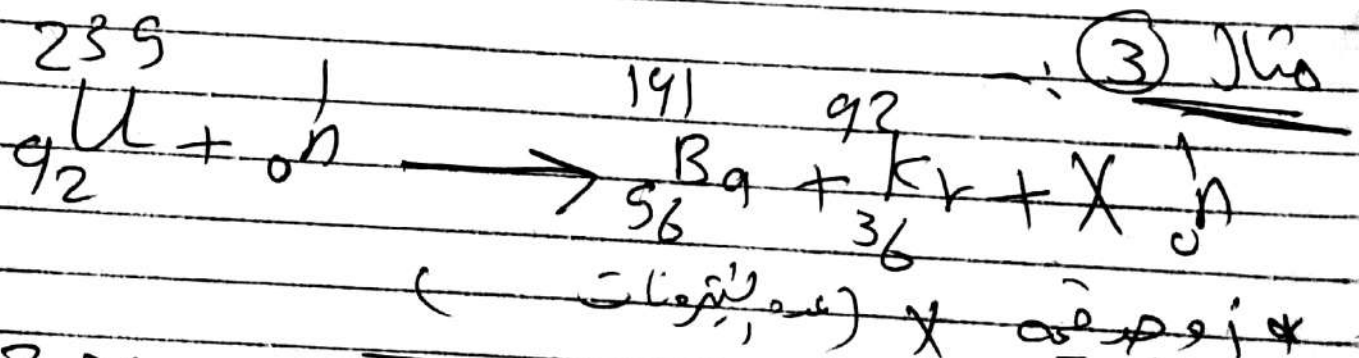 مثال ③ :-
²³⁵₉₂U + ¹₀n ⟶ ¹⁴¹₅₆Ba + ⁹²₃₆Kr + X ¹₀n
* أوجد قيمة X (عدد النيترونات)